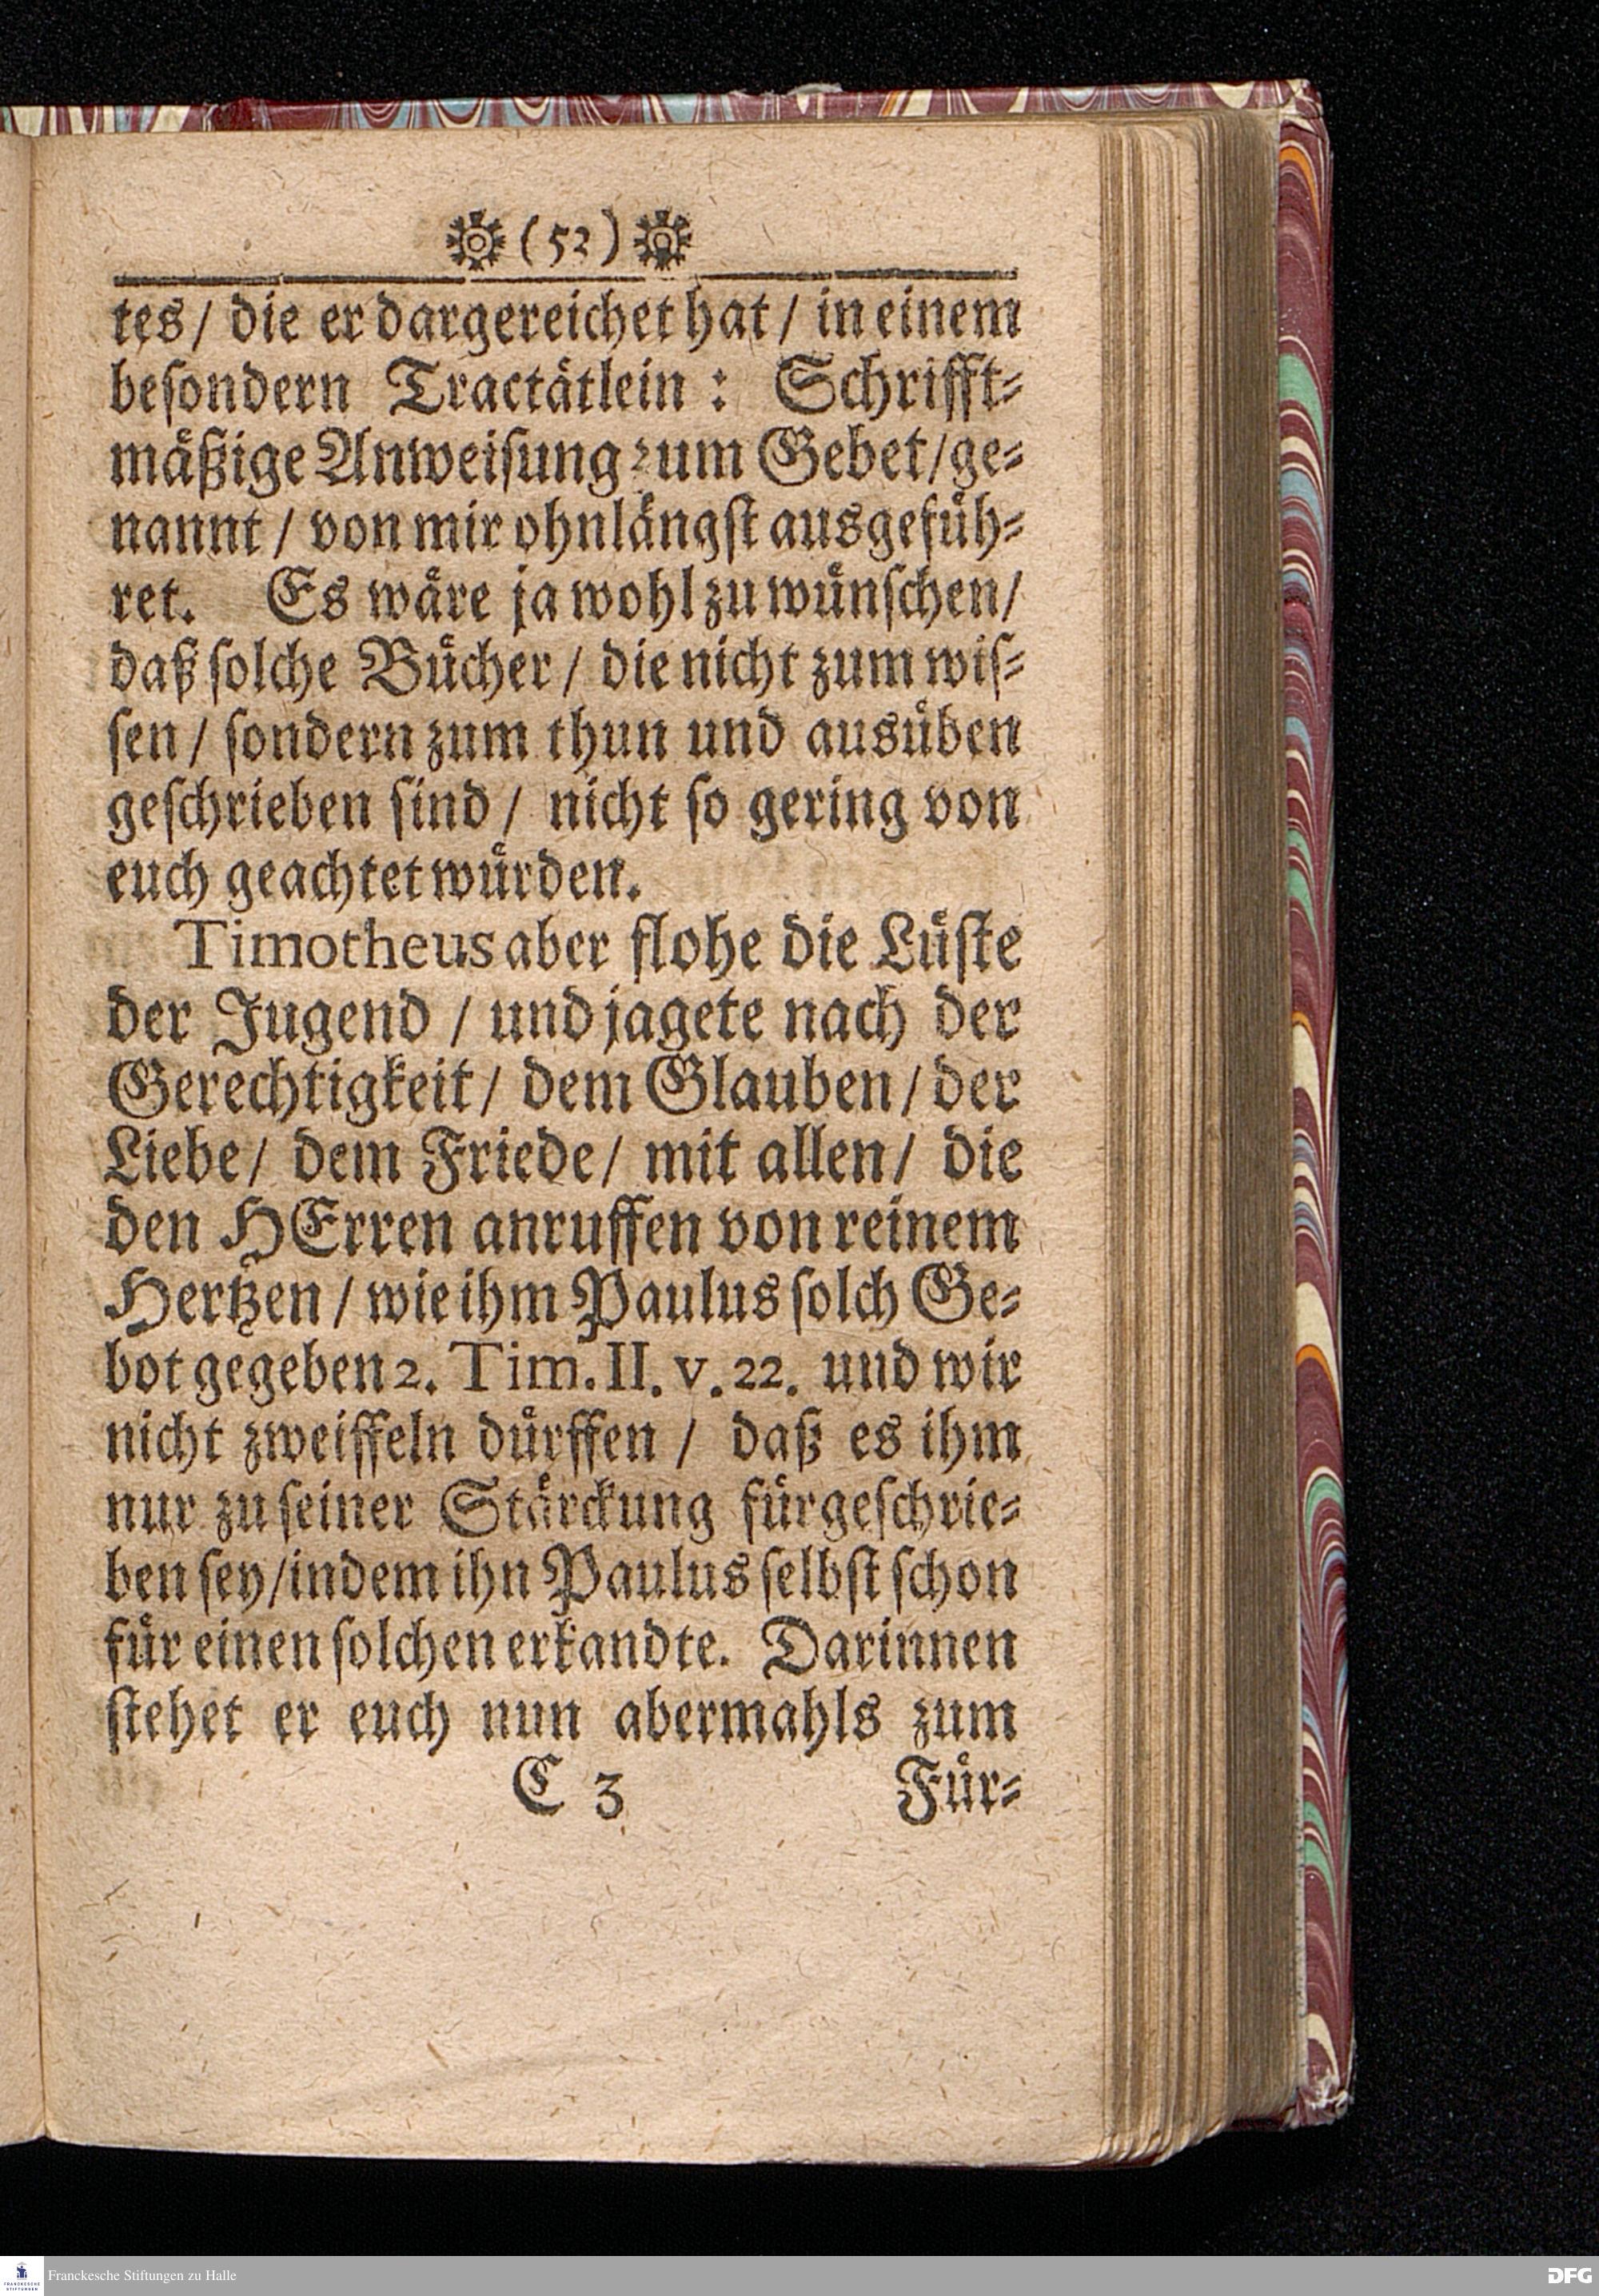 (52)
tes/ die er dargereichet hat/ in einem
besondern Tractätlein: Schrifft-
mäßige Anweisung zum Gebet/ ge-
nannt/ von mir ohnlängst ausgefüh-
ret. Es wäre ja wohl zu wünschen/
daß solche Bücher/ die nicht zum wis-
sen/ sondern zum thun und ausüben
geschrieben sind/ nicht so gering von
euch geachtet würden.
Timotheus aber flohe die Lüste
der Jugend/ und jagete nach der
Gerechtigkeit/ dem Glauben/ der
Liebe/ dem Friede/ mit allen/ die
den HErren anruffen von reinem
Hertzen/ wie ihm Paulus solch Ge-
bot gegeben 2. Tim. II. v. 22. und wir
nicht zweiffeln dürffen/ daß es ihm
nur zu seiner Stärckung fürgeschrie-
ben sey/ indem ihn Paulus selbst schon
für einen solchen erkandte. Darinnen
stehet er euch nun abermahls zum
C 3 Für-
FRANCKESCHE STIFTUNGEN Franckesche Stiftungen zu Halle DFG